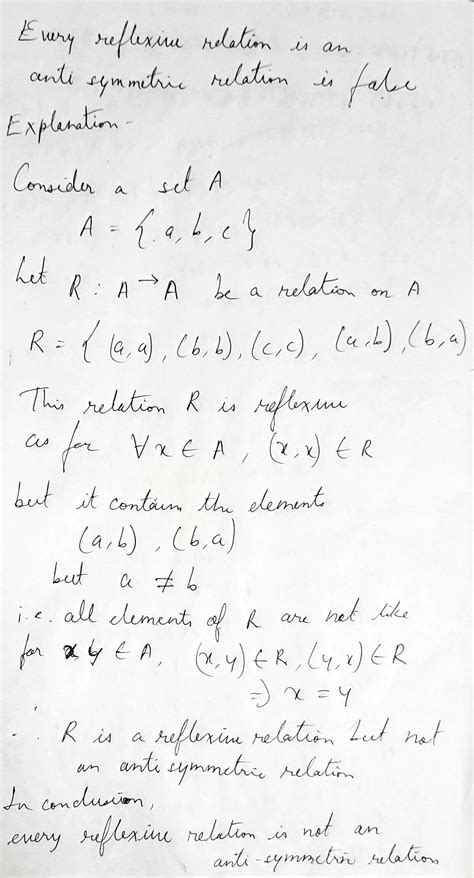 Every reflexive relation is an
anti symmetric relation is false
Explanation -
Consider a set A
A = {a, b, c}
Let R : A → A be a relation on A
R = { (a, a), (b, b), (c, c), (a, b), (b, a)
This relation R is reflexive
as for ∀ x ∈ A , (x, x) ∈ R
but it contains the elements
(a, b) , (b, a)
but a ≠ b
i.e. all elements of R are not like
for x, y ∈ A, (x, y) ∈ R, (y, x) ∈ R
⇒ x = y
∴ R is a reflexive relation but not
an anti symmetric relation
In conclusion,
every reflexive relation is not an
anti-symmetric relation